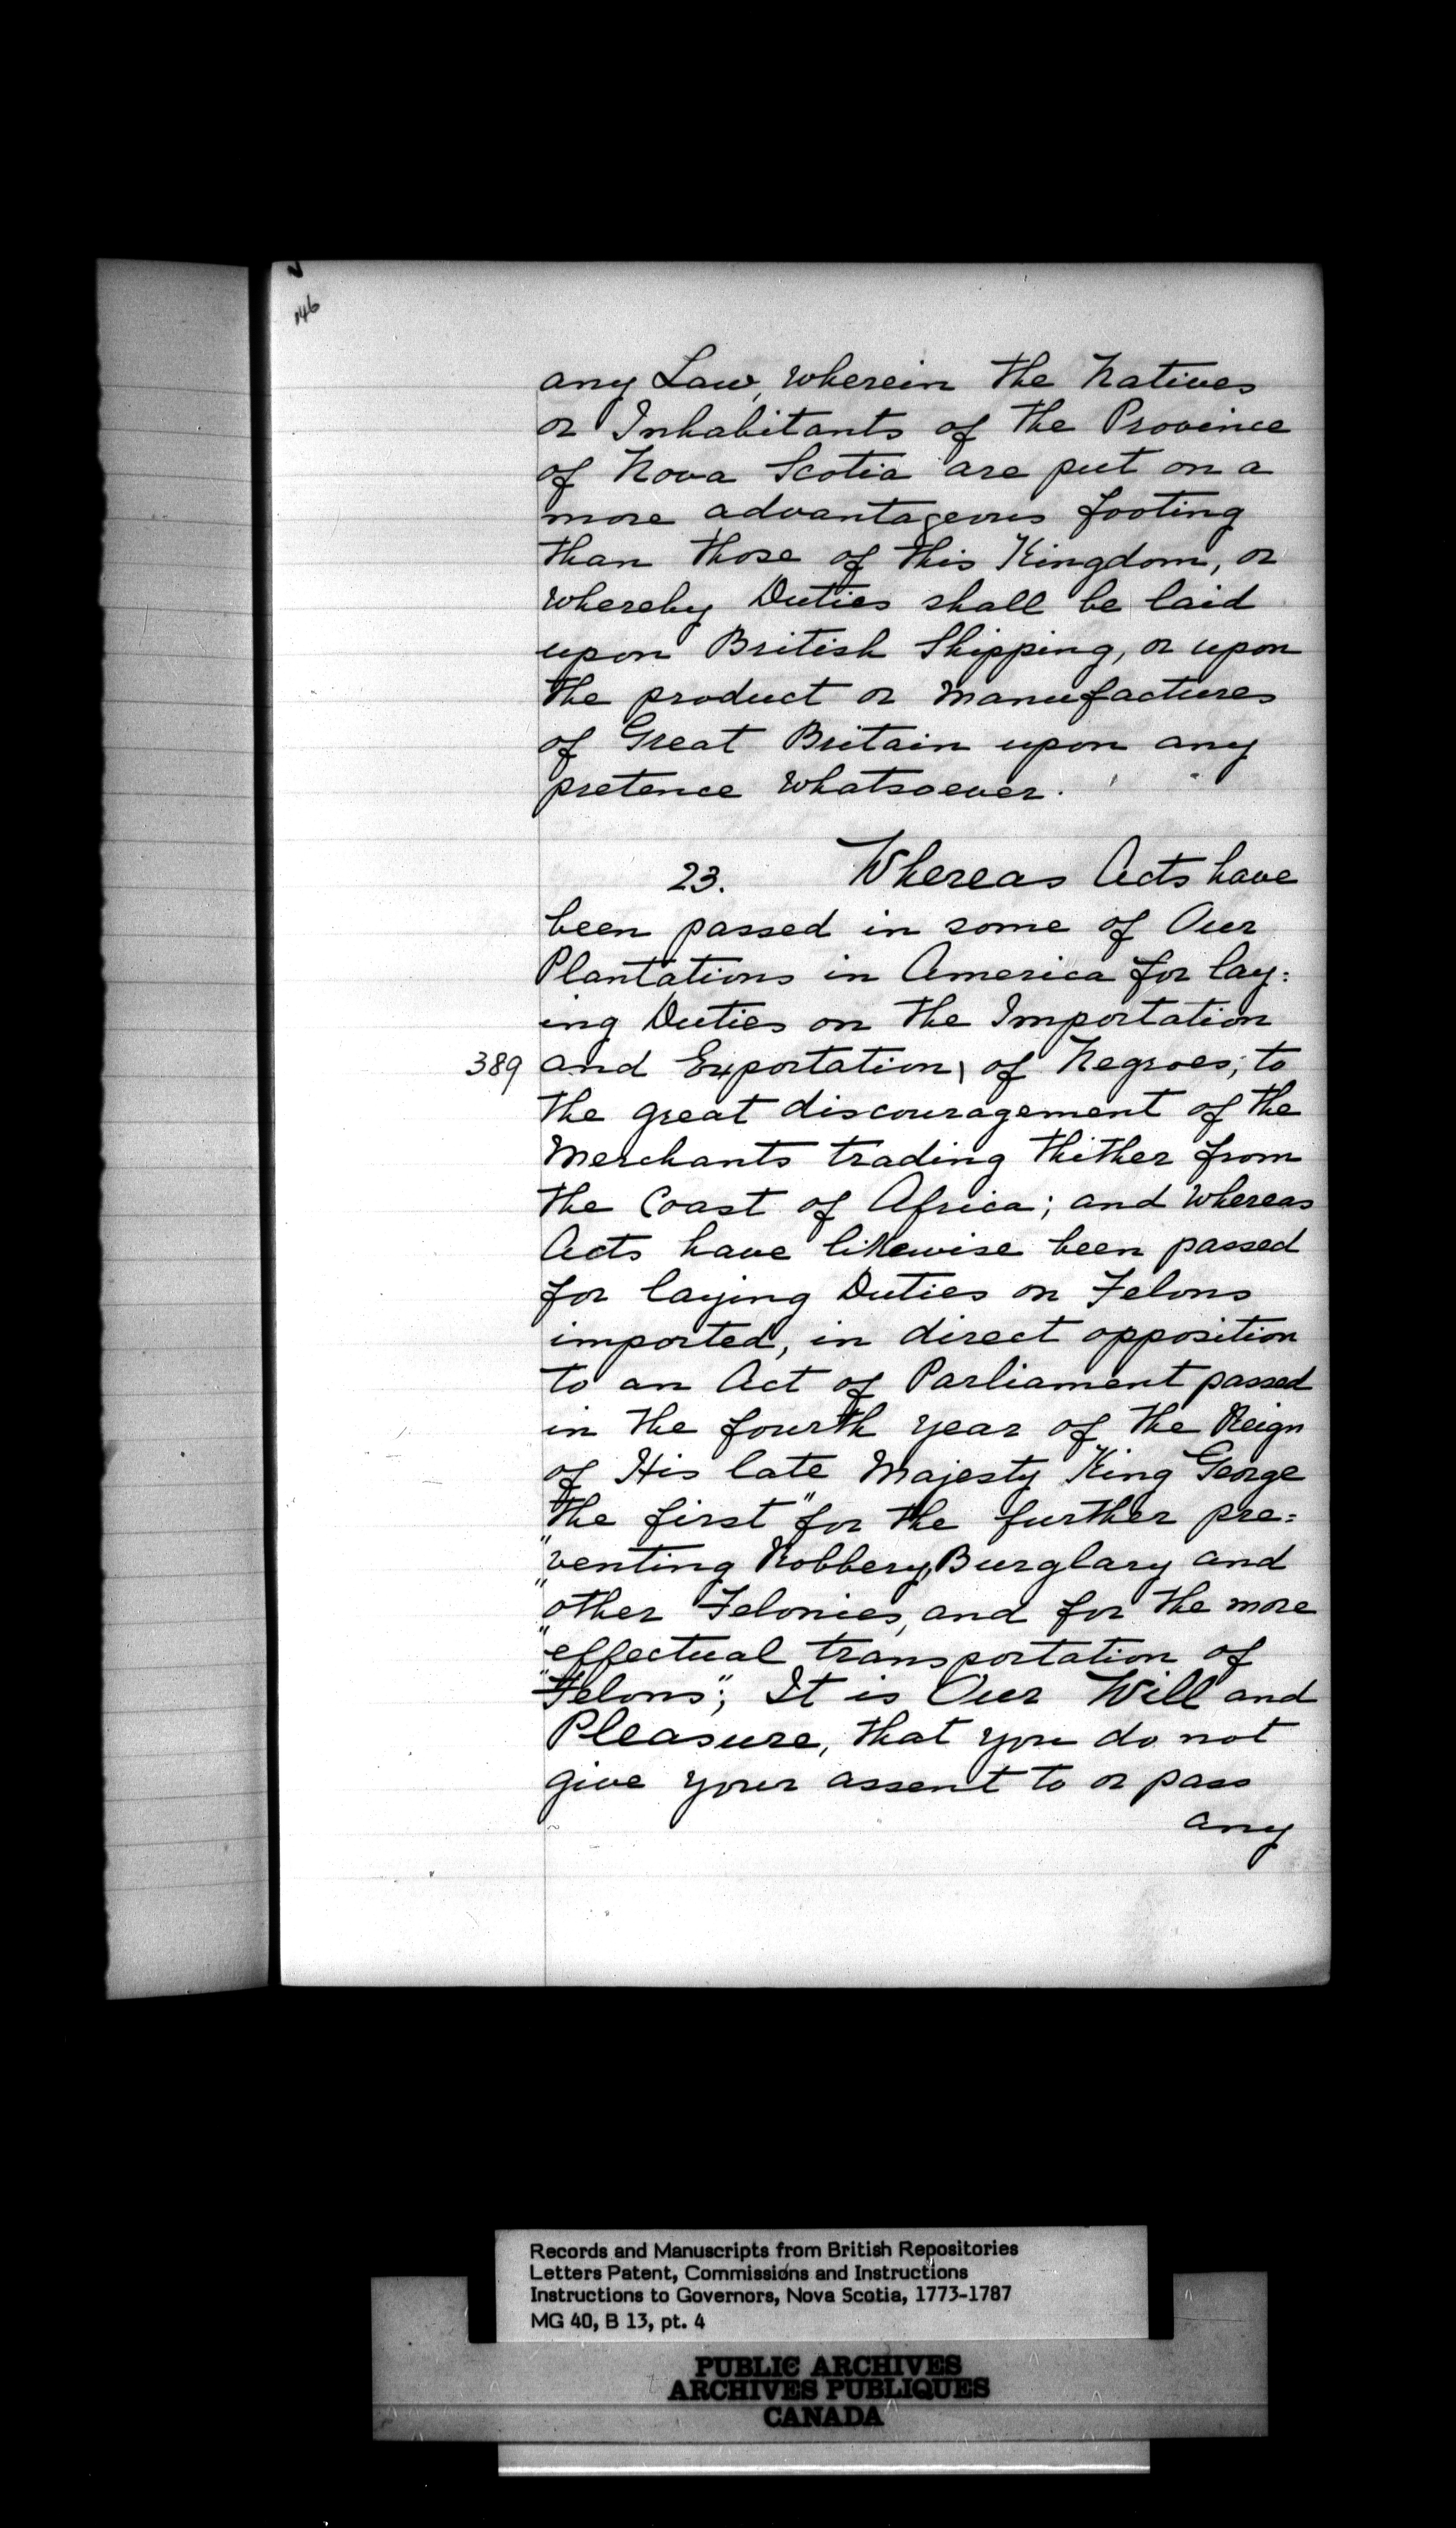 146
any Law, wherein the Natives
or Inhabitants of the Province
of Nova Scotia are put on a
more advantageous footing
than those of this Kingdom, or
whereby Duties shall be laid
upon British Shipping, or upon
the product or Manufactures
of Great Britain upon any
pretence whatsoever.
23. Whereas Acts have
been passed in some of Our
Plantations in America for lay:
ing Duties on the Importation
389 and Exportation \ of Negroes, to
the great discouragement of the
Merchants trading thither from
the Coast of Africa; and whereas
Acts have likewise been passed
for laying Duties on Felons
imported, in direct opposition
to an Act of Parliament passed
in the fourth year of the Reign
of His late Majesty King George
the first "for the further pre=
"venting Robbery, Burglary and
"other Felonies, and for the more
"effectual transportation of
"Felons"; It is Our Will and
Pleasure, that you do not
give your assent to or pass
any
Records and Manuscripts from British Repositories
Letters Patent, Commissions and Instructions
Instructions to Governors, Nova Scotia, 1773-1787
MG 40, B 13, pt. 4
PUBLIC ARCHIVES
ARCHIVES PUBLIQUES
CANADA